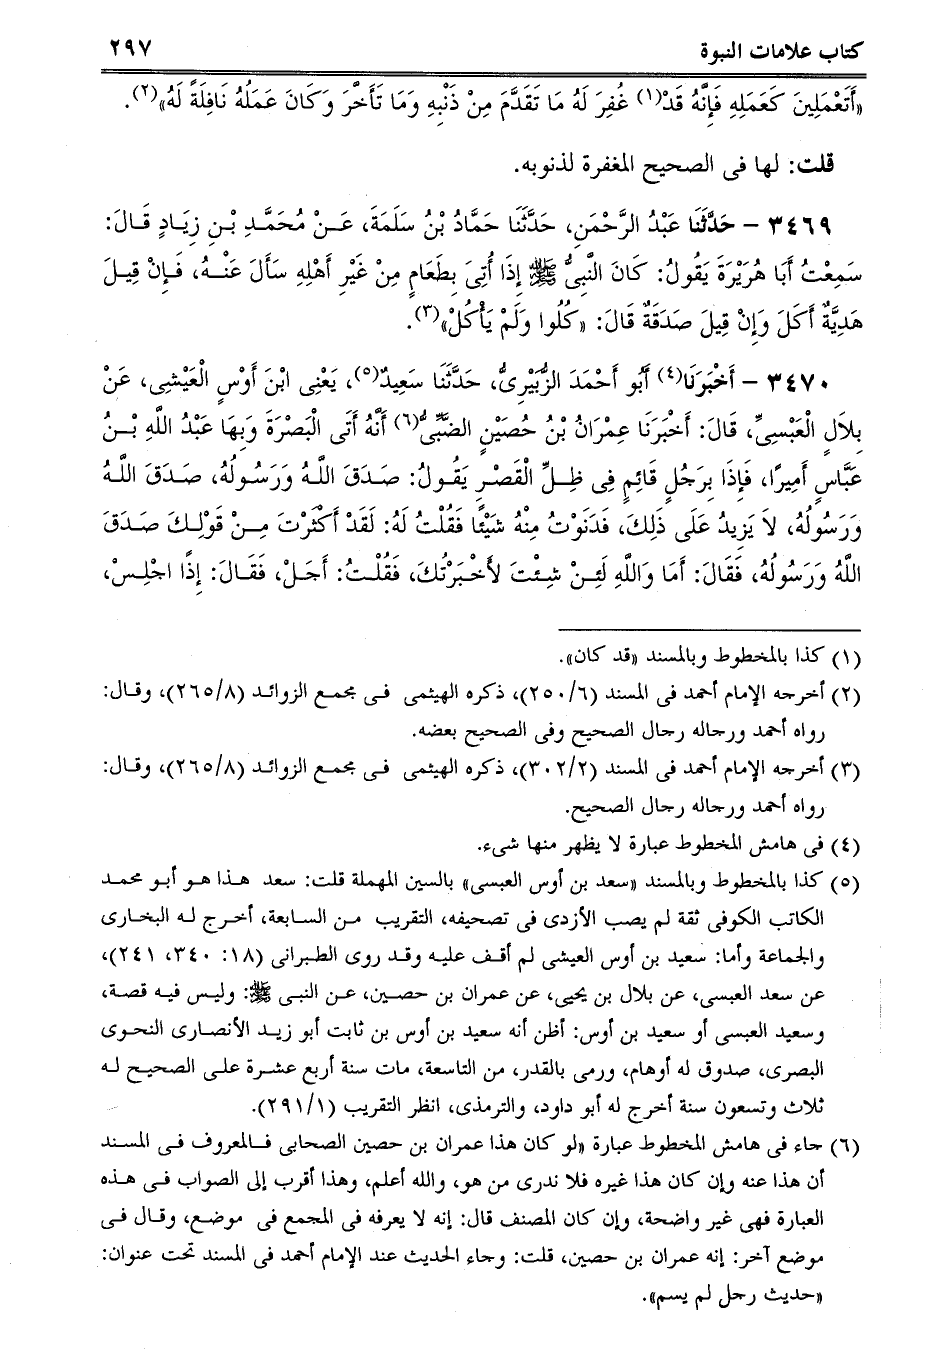 كتاب علامات النبوة ٢٩٧
«أَتَعْمَلِينَ كَعَمَلِهِ فَإِنَّهُ قَدْ(١) غُفِرَ لَهُ مَا تَقَدَّمَ مِنْ ذَنْبِهِ وَمَا تَأَخَّرَ وَكَانَ عَمَلُهُ نَافِلَةً لَهُ»(٢).
قلت: لها فى الصحيح المغفرة لذنوبه.
٣٤٦٩ – حَدَّثَنَا عَبْدُ الرَّحْمَنِ، حَدَّثَنَا حَمَّادُ بْنُ سَلَمَةَ، عَنْ مُحَمَّدِ بْنِ زِيَادٍ قَالَ:
سَمِعْتُ أَبَا هُرَيْرَةَ يَقُولُ: كَانَ النَّبِىُّ ﷺ إِذَا أُتِىَ بِطَعَامٍ مِنْ غَيْرِ أَهْلِهِ سَأَلَ عَنْهُ، فَإِنْ قِيلَ
هَدِيَّةٌ أَكَلَ وَإِنْ قِيلَ صَدَقَةٌ قَالَ: «كُلُوا وَلَمْ يَأْكُلْ»(٣).
٣٤٧٠ – أَخْبَرَنَا(٤) أَبُو أَحْمَدَ الزُّبَيْرِىُّ، حَدَّثَنَا سَعِيدٌ(٥)، يَعْنِى ابْنَ أَوْسٍ الْعَيْشِى، عَنْ
بِلَالٍ الْعَبْسِىِّ، قَالَ: أَخْبَرَنَا عِمْرَانُ بْنُ حُصَيْنٍ الضَّبِّىُّ(٦) أَنَّهُ أَتَى الْبَصْرَةَ وَبِهَا عَبْدُ اللَّهِ بْنُ
عَبَّاسٍ أَمِيرًا، فَإِذَا بِرَجُلٍ قَائِمٍ فِى ظِلِّ الْقَصْرِ يَقُولُ: صَدَقَ اللَّهُ وَرَسُولُهُ، صَدَقَ اللَّهُ
وَرَسُولُهُ، لاَ يَزِيدُ عَلَى ذَلِكَ، فَدَنَوْتُ مِنْهُ شَيْئًا فَقُلْتُ لَهُ: لَقَدْ أَكْثَرْتَ مِنْ قَوْلِكَ صَدَقَ
اللَّهُ وَرَسُولُهُ، فَقَالَ: أَمَا وَاللَّهِ لَئِنْ شِئْتَ لأَخْبَرْتُكَ، فَقُلْتُ: أَجَلْ، فَقَالَ: إِذًا اجْلِسْ،
(١) كذا بالمخطوط وبالمسند «قد كان».
(٢) أخرجه الإمام أحمد فى المسند (٢٥٠/٦)، ذكره الهيثمى فى مجمع الزوائد (٢٦٥/٨)، وقال:
رواه أحمد ورجاله رجال الصحيح وفى الصحيح بعضه.
(٣) أخرجه الإمام أحمد فى المسند (٣٠٢/٢)، ذكره الهيثمى فى مجمع الزوائد (٢٦٥/٨)، وقال:
رواه أحمد ورجاله رجال الصحيح.
(٤) فى هامش المخطوط عبارة لا يظهر منها شىء.
(٥) كذا بالمخطوط وبالمسند «سعد بن أوس العبسى» بالسين المهملة قلت: سعد هذا هو أبو محمد
الكاتب الكوفى ثقة لم يصب الأزدى فى تصحيفه، التقريب من السابعة، أخرج له البخارى
والجماعة وأما: سعيد بن أوس العيشى لم أقف عليه وقد روى الطبرانى (١٨: ٢٤٠، ٢٤١)،
عن سعد العبسى، عن بلال بن يحيى، عن عمران بن حصين، عن النبى ﷺ: وليس فيه قصة،
وسعيد العبسى أو سعيد بن أوس: أظن أنه سعيد بن أوس بن ثابت أبو زيد الأنصارى النحوى
البصرى، صدوق له أوهام، ورمى بالقدر، من التاسعة، مات سنة أربع عشرة على الصحيح له
ثلاث وتسعون سنة أخرج له أبو داود، والترمذى، انظر التقريب (٢٩١/١).
(٦) جاء فى هامش المخطوط عبارة «لو كان هذا عمران بن حصين الصحابى فالمعروف فى المسند
أن هذا عنه وإن كان هذا غيره فلا ندرى من هو، والله أعلم، وهذا أقرب إلى الصواب فى هذه
العبارة فهى غير واضحة، وإن كان المصنف قال: إنه لا يعرفه فى المجمع فى موضع، وقال فى
موضع آخر: إنه عمران بن حصين، قلت: وجاء الحديث عند الإمام أحمد فى المسند تحت عنوان:
«حديث رجل لم يسم».